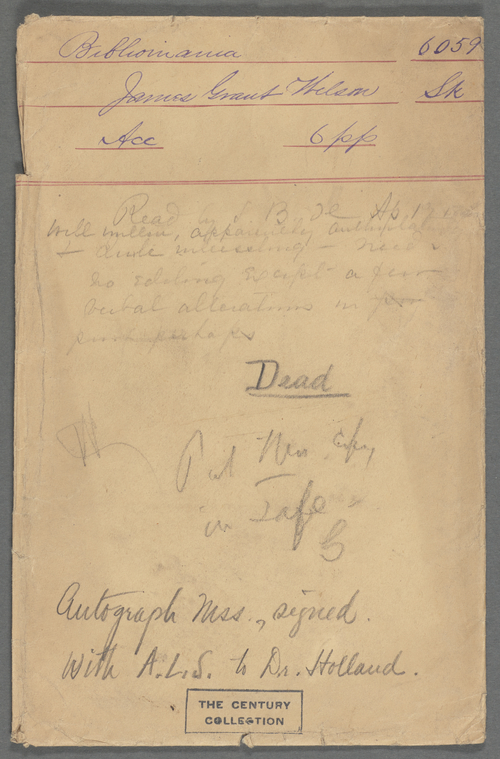 Bibliomania 6059
James Grant Wilson Sk
Acc 6 pp
Read
Well written, apparently
+ quite interesting – need
no editing except a few
verbal alterations in
perhaps
Dead
W
Put this Copy
in Safe
G
Autograph Mss., signed.
With A.L.S. to Dr. Holland.
THE CENTURY
COLLECTION